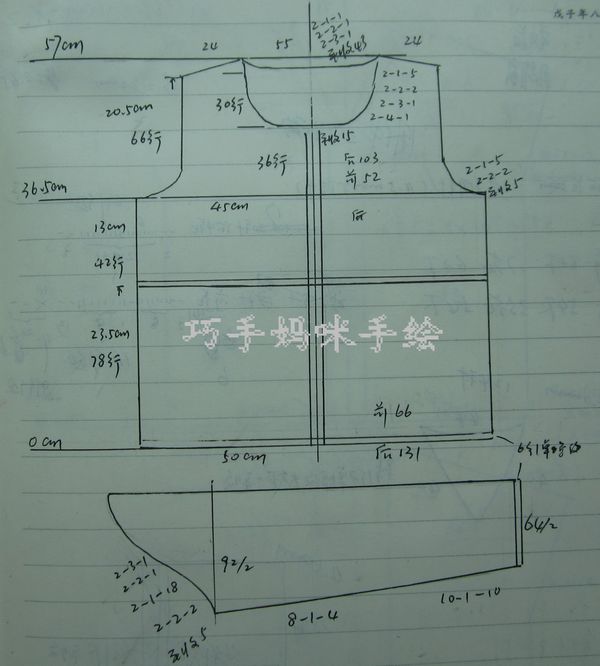 戊子年八
2-1-1
2-2-1
2-3-1
平收43
57cm
24
55
24
20.5cm
66行
30行
2-1-5
2-2-2
2-3-1
2-4-1
平收15
36行
后103
前52
2-1-5
2-2-2
平收5
36.5cm
45cm
后
13cm
42行
23.5cm
78行
巧手妈咪手绘
前66
0cm
50cm
后131
6行单
64/2
92/2
2-3-1
2-2-1
2-1-18
2-2-2
平收5
8-1-4
10-1-10